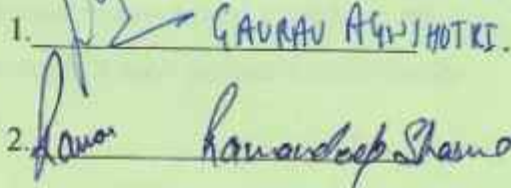 1. GAURAV AGNIHOTRI.
2. Raman Ramandeep Sharma